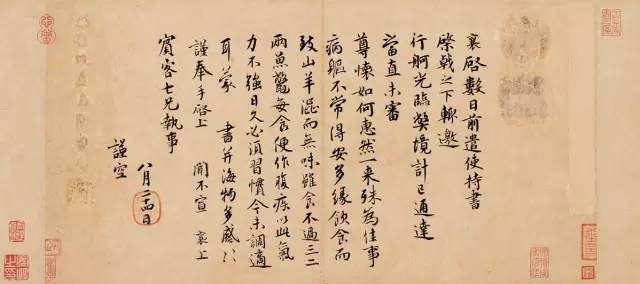 襄啓數日前遣使持書
棨戟之下輙邀
行舸光臨弊境計已通達
當直未審
尊懷如何惠然一来殊為佳事
病軀不常得安多縁飲食而
致山羊澀而無味雖食不過三二
兩魚鼈每食便作腹疾以此氣
力不強日久必須習慣今未調適
耳蒙 書并海物多感〻
謹奉手啓上 聞不宣 襄上
賓客七兄執事
八月二十四日
謹空